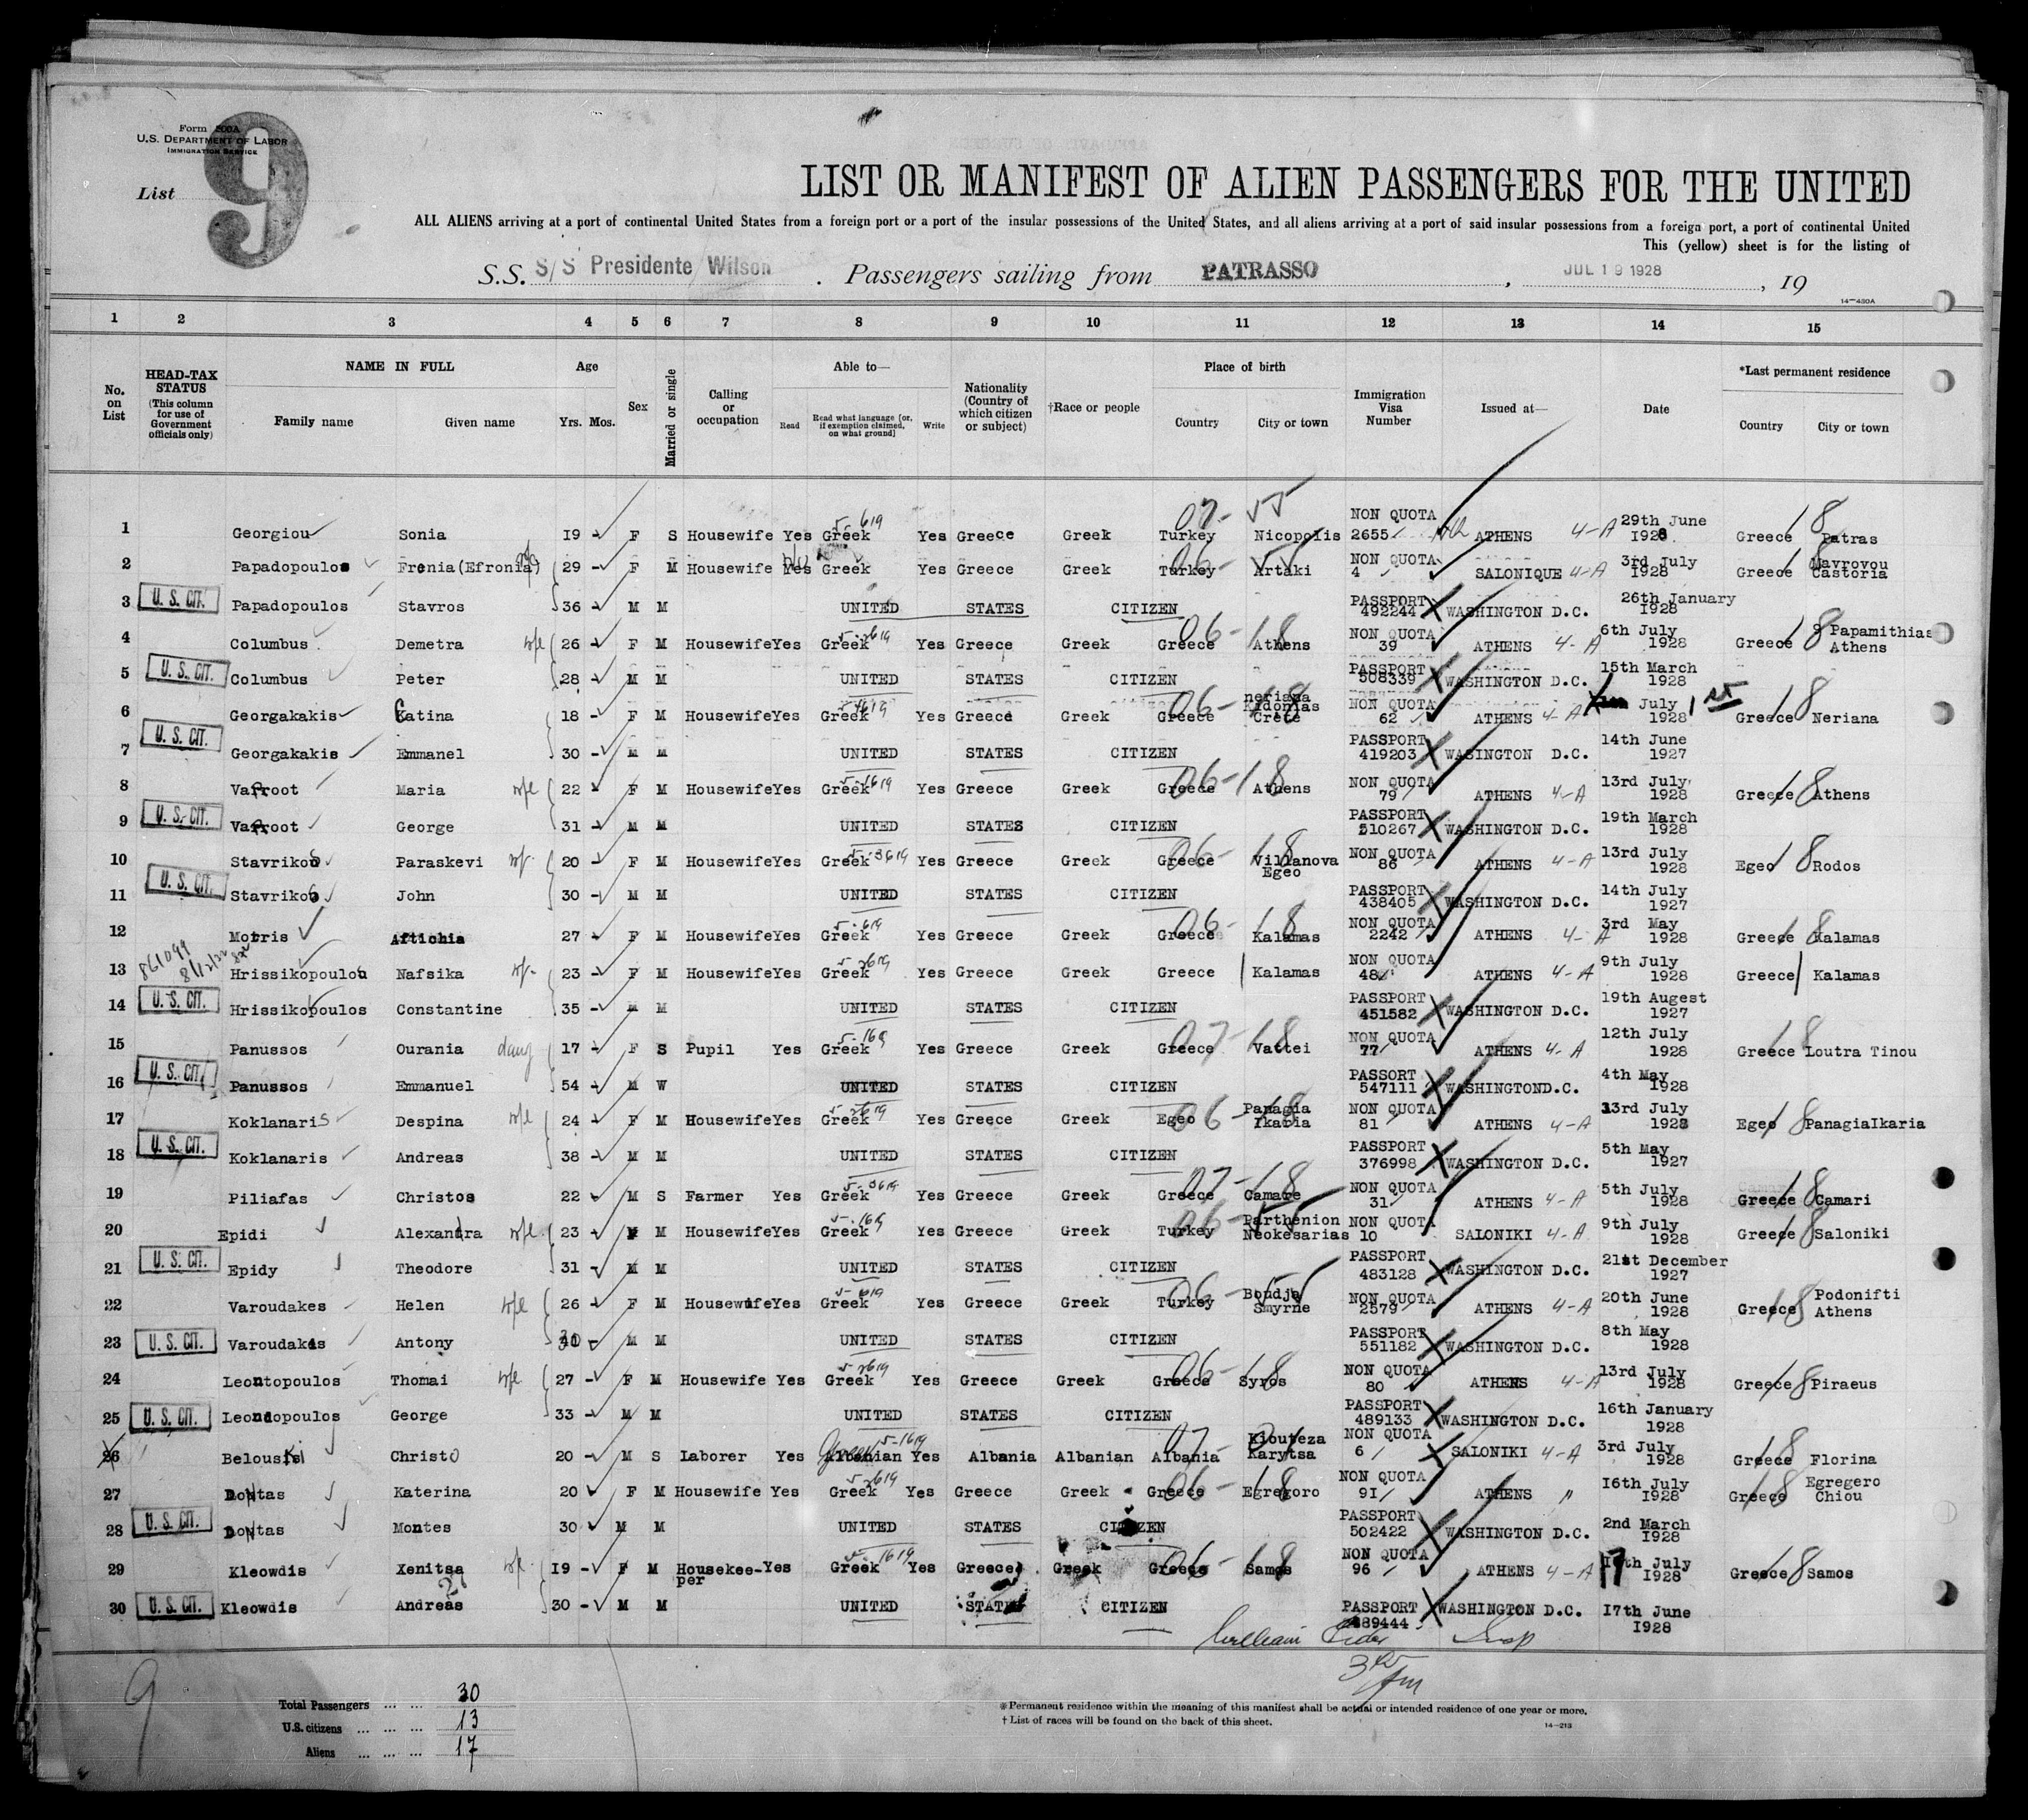 Form 500A
U.S. DEPARTMENT OF LABOR
IMMIGRATION SERVICE
List 9
LIST OR MANIFEST OF ALIEN PASSENGERS FOR THE UNITED
ALL ALIENS arriving at a port of continental United States from a foreign port or a port of the insular possessions of the United States, and all aliens arriving at a port of said insular possessions from a foreign port, a port of continental United
This (yellow) sheet is for the listing of
S.S. S/S Presidente Wilson . Passengers sailing from PATRASSO , JUL 19 1928 , 19
14-430A
1 2 3 4 5 6 7 8 9 10 11 12 13 14 15
No. on List
HEAD-TAX STATUS (This column for use of Government officials only)
NAME IN FULL
Family name Given name
Age
Yrs. Mos.
Sex
Married or single
Calling or occupation
Able to—
Read Read what language [or, if exemption claimed, on what ground] Write
Nationality (Country of which citizen or subject)
†Race or people
Place of birth
Country City or town
Immigration Visa Number
Issued at—
Date
*Last permanent residence
Country City or town
1 Georgiou Sonia 19 F S Housewife Yes Greek 5-619 Yes Greece Greek Turkey Nicopolis NON QUOTA 2655 ATHENS 4-A 29th June 1928 Greece Patras
2 Papadopoulos Frenia (Efronia) 29 F M Housewife Yes Greek Yes Greece Greek Turkey Artaki NON QUOTA 4 SALONIQUE 4-A 3rd July 1928 Greece Mavrovou Castoria
3 U. S. CIT. Papadopoulos Stavros 36 M M UNITED STATES CITIZEN PASSPORT 492244 WASHINGTON D.C. 26th January 1928
4 Columbus Demetra wife 26 F M Housewife Yes Greek Yes Greece Greek Greece Athens NON QUOTA 39 ATHENS 4-A 6th July 1928 Greece Papamithias Athens
5 U. S. CIT. Columbus Peter 28 M M UNITED STATES CITIZEN PASSPORT 508339 WASHINGTON D.C. 15th March 1928
6 Georgakakis Catina 18 F M Housewife Yes Greek Yes Greece Greek Greece neriana Kidonias Crete NON QUOTA 62 ATHENS 4-A July 1928 Greece Neriana
7 U. S. CIT. Georgakakis Emmanel 30 M M UNITED STATES CITIZEN PASSPORT 419203 WASINGTON D.C. 14th June 1927
8 Varoot Maria wife 22 F M Housewife Yes Greek Yes Greece Greek Greece Athens NON QUOTA 79 ATHENS 4-A 13rd July 1928 Greece Athens
9 U. S. CIT. Varoot George 31 M M UNITED STATES CITIZEN PASSPORT 510267 WASHINGTON D.C. 19th March 1928
10 Stavrikos Paraskevi 20 F M Housewife Yes Greek Yes Greece Greek Greece Villanova Egeo NON QUOTA 86 ATHENS 4-A 13rd July 1928 Egeo Rodos
11 U. S. CIT. Stavrikos John 30 M M UNITED STATES CITIZEN PASSPORT 438405 WASHINGTON D.C. 14th July 1927
12 Morris Aftichia 27 F M Housewife Yes Greek Yes Greece Greek Greece Kalamas NON QUOTA 2242 ATHENS 4-A 3rd May 1928 Greece Kalamas
13 Hrissikopoulou Nafsika 23 F M Housewife Yes Greek Yes Greece Greek Greece Kalamas NON QUOTA 48 ATHENS 4-A 9th July 1928 Greece Kalamas
14 U. S. CIT. Hrissikopoulos Constantine 35 M M UNITED STATES CITIZEN PASSPORT 451582 WASHINGTON D.C. 19th Augest 1927
15 Panussos Ourania daug 17 F S Pupil Yes Greek Yes Greece Greek Greece Vattei NON QUOTA 77 ATHENS 4-A 12th July 1928 Greece Loutra Tinou
16 U. S. CIT. Panussos Emmanuel 54 M W UNITED STATES CITIZEN PASSORT 547111 WASHINGTOND.C. 4th May 1928
17 Koklanaris Despina wife 24 F M Housewife Yes Greek Yes Greece Greek Egeo Panagia Ikaria NON QUOTA 81 ATHENS 4-A 13rd July 1928 Egeo PanagiaIkaria
18 U. S. CIT. Koklanaris Andreas 38 M M UNITED STATES CITIZEN PASSPORT 376998 WASHINGTON D.C. 5th May 1927
19 Piliafas Christos 22 M S Farmer Yes Greek Yes Greece Greek Greece Camare NON QUOTA 31 ATHENS 4-A 5th July 1928 Greece Camari
20 Epidi Alexandra wife 23 F M Housewife Yes Greek Yes Greece Greek Turkey Parthenion Neokesarias NON QUOTA 10 SALONIKI 4-A 9th July 1928 Greece Saloniki
21 U. S. CIT. Epidy Theodore 31 M M UNITED STATES CITIZEN PASSPORT 483128 WASHINGTON D.C. 21st December 1927
22 Varoudakes Helen wife 26 F M Housewife Yes Greek Yes Greece Greek Turkey Boudja Smyrne NON QUOTA 2579 ATHENS 4-A 20th June 1928 Greece Podonifti Athens
23 U. S. CIT. Varoudakis Antony M M UNITED STATES CITIZEN PASSPORT 551182 WASHINGTON D.C. 8th May 1928
24 Leontopoulos Thomai wife 27 F M Housewife Yes Greek Yes Greece Greek Greece Syros NON QUOTA 80 ATHENS 4-A 13rd July 1928 Greece Piraeus
25 U. S. CIT. Leondopoulos George 33 M M UNITED STATES CITIZEN PASSPORT 489133 WASHINGTON D.C. 16th January 1928
26 Belouski Christo 20 M S Laborer Yes Albanian Yes Albania Albanian Albania Klouteza Karytsa NON QUOTA 6 SALONIKI 4-A 3rd July 1928 Greece Florina
27 Dontas Katerina 20 F M Housewife Yes Greek Yes Greece Greek Greece Egregoro NON QUOTA 91 ATHENS " 16th July 1928 Greece Egregero Chiou
28 U. S. CIT. Dontas Montes 30 M M UNITED STATES CITIZEN PASSPORT 502422 WASHINGTON D.C. 2nd March 1928
29 Kleowdis Xenitsa 19 F M Housekee-per Yes Greek Yes Greece Greek Greece Samos NON QUOTA 96 ATHENS 4-A 17th July 1928 Greece Samos
30 U. S. CIT. Kleowdis Andreas 30 M M UNITED STATES CITIZEN PASSPORT 489444 WASHINGTON D.C. 17th June 1928
William Insp
9
Total Passengers ... ... 30
U.S. citizens ... ... ... 13
Aliens ... ... ... 17
*Permanent residence within the meaning of this manifest shall be actual or intended residence of one year or more.
†List of races will be found on the back of this sheet.
14-213